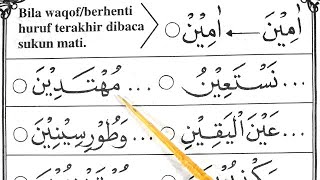 Bila waqof/berhenti
huruf terakhir dibaca
sukun mati.
اٰمِيْنَ ← اٰمِيْنْ
... نَسْتَعِيْنُ ... مُهْتَدِيْنَ
... عَيْنَ الْيَقِيْنِ ... وَطُوْرِ سِيْنِيْنَ